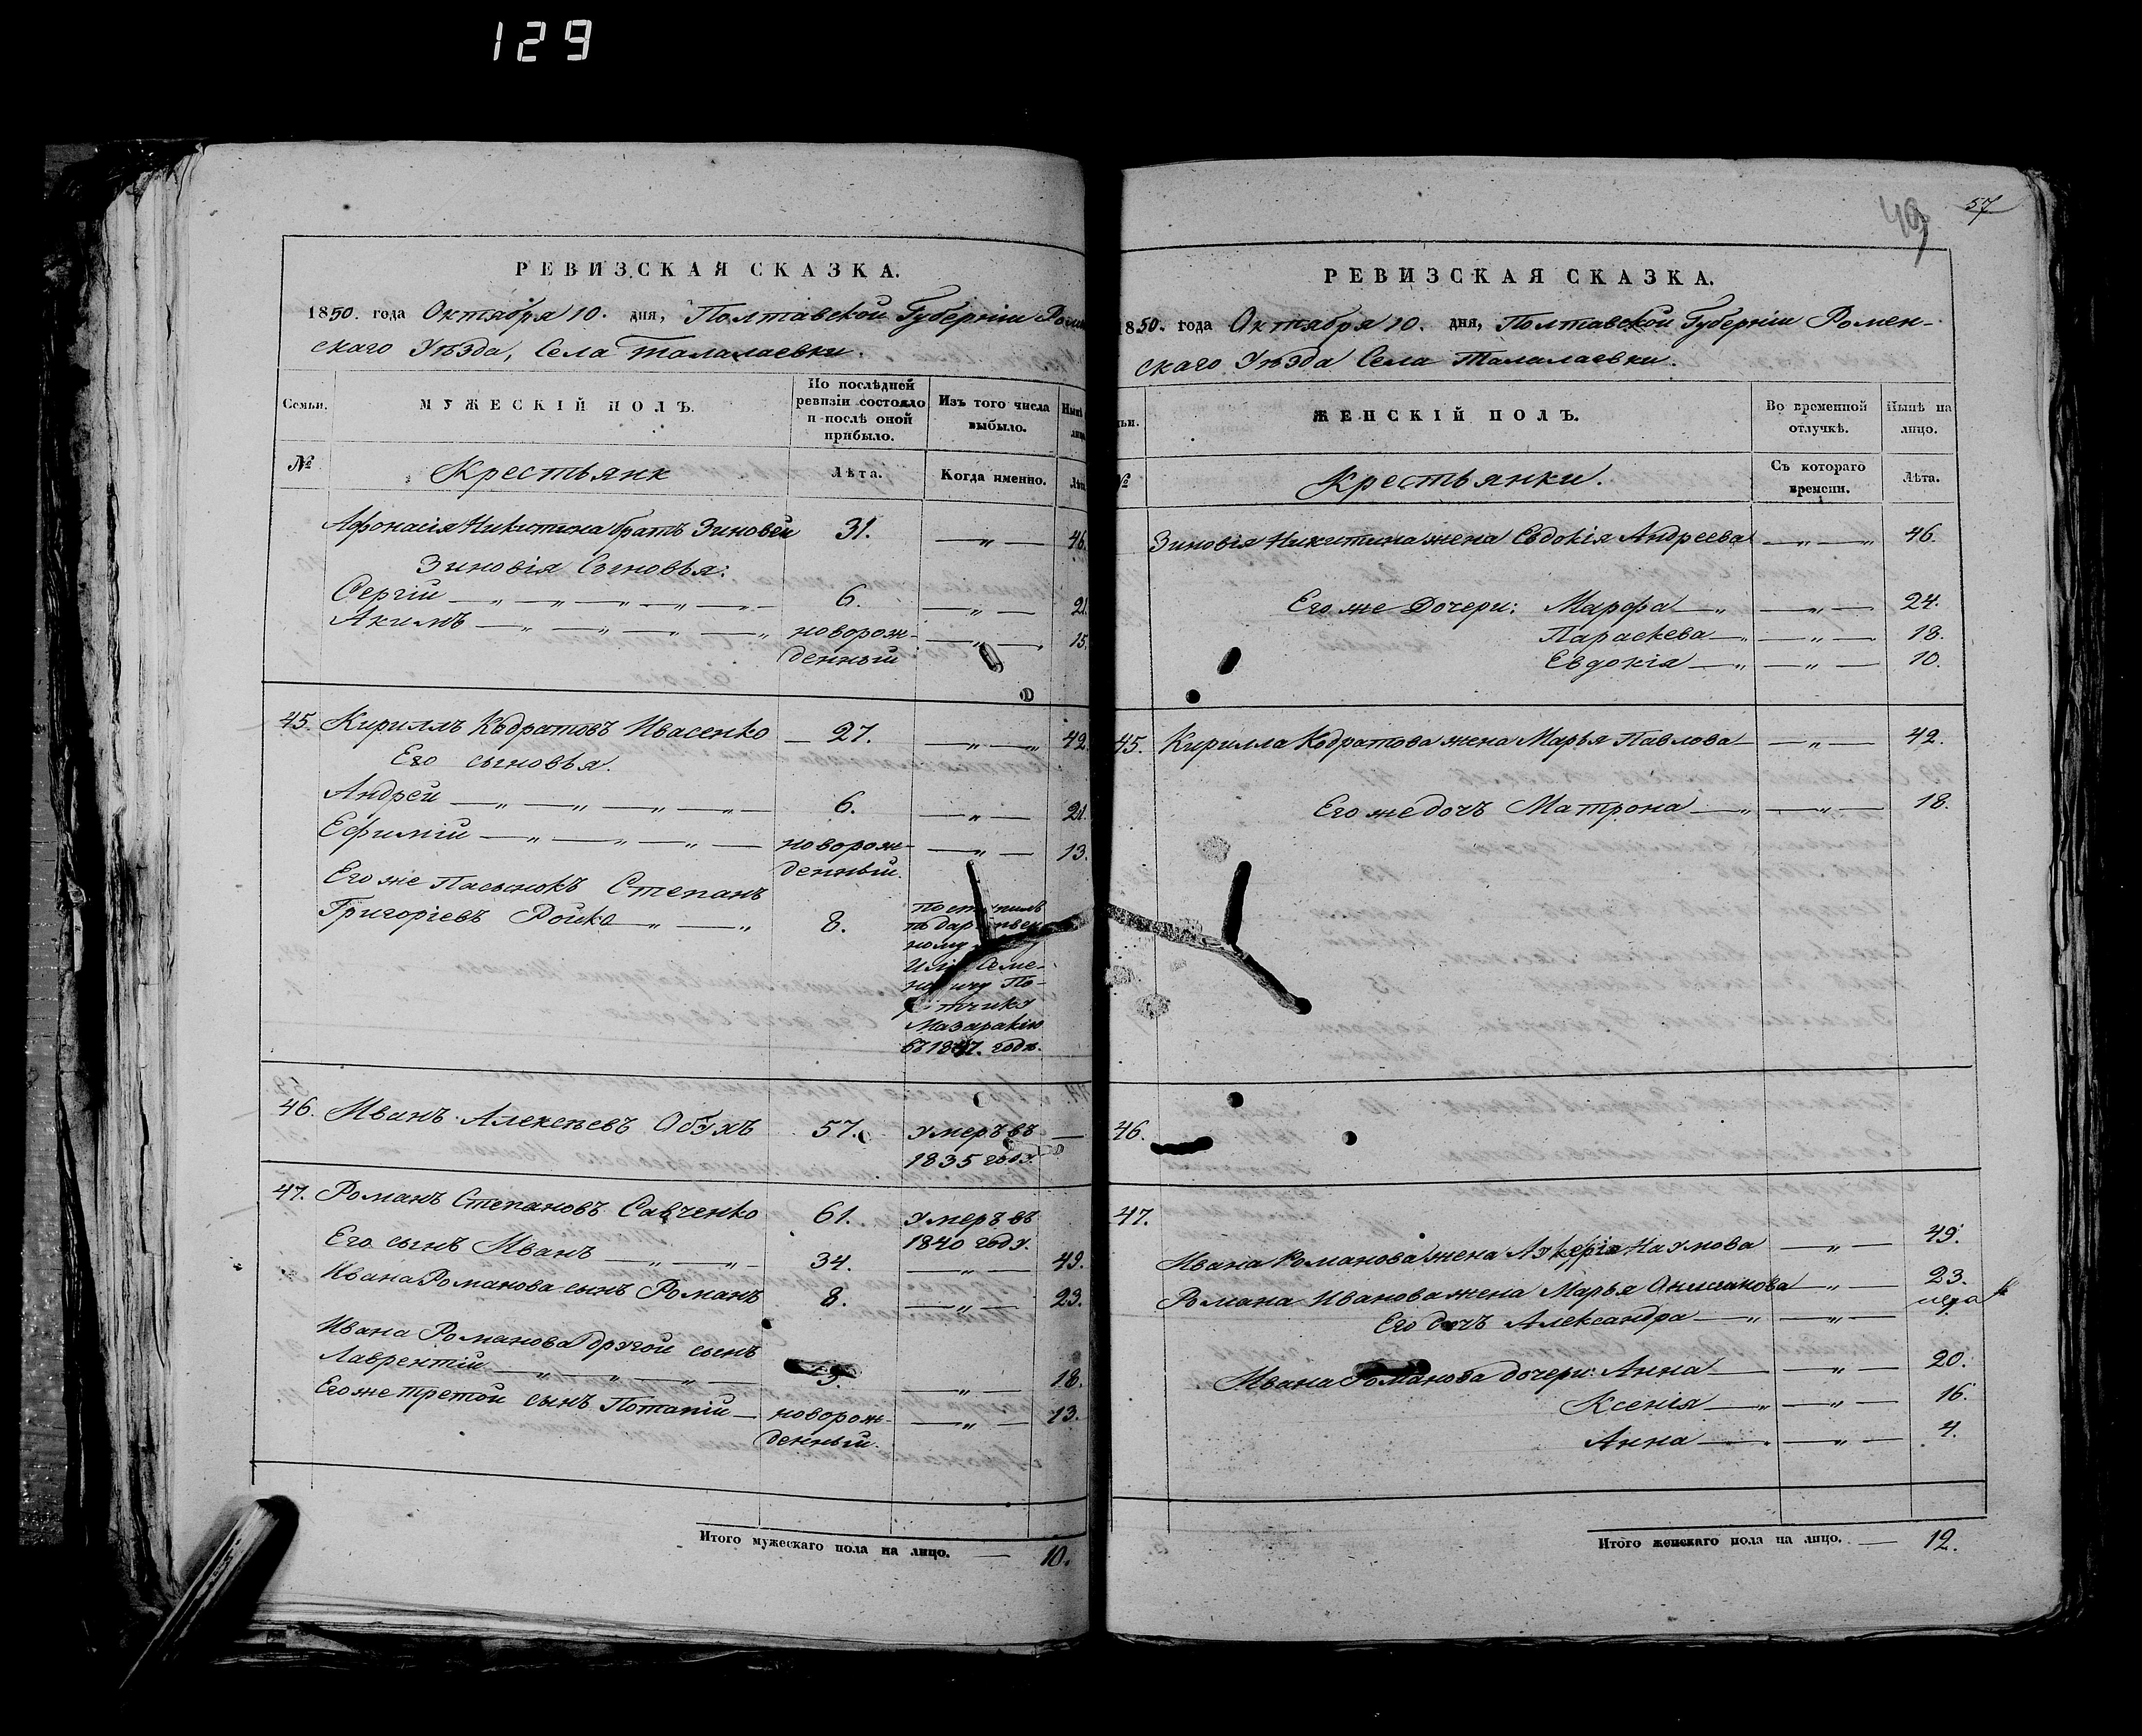 129
РЕВИЗСКАЯ СКАЗКА.
1850. года Октября 10. дня, Полтавской Губерніи Ромен
скаго Уѣзда, Села Талалаевки.
Семьи.
МУЖЕСКІЙ ПОЛЪ.
По послѣдней
ревизіи состояло
и послѣ оной
прибыло.
Изъ того числа
выбыло.
Нынѣ
лицо
№
Крестьяне
Лѣта.
Когда именно.
Лѣта
Афонасія Никитина братъ Зиновей 31. —„— 46.
Зиновія Сыновья:
Сергій —„—„—„—„— 6. —„— 21.
Акимъ —„—„—„—„ новорож- —„— 15.
денный
45. Кирилъ Къдратовъ Ивасенко — 27. —„—„ 42.
Его сыновья.
Андрей —„—„—„—„— 6. —„— 21.
Ефимій —„—„—„— новорож- —„— 13.
денный.
Его же Пасынокъ Степанъ
Григоріевъ Ройко —„—„ 8. Поступилъ
ному
Семе-
По-
Мазаракію
въ 1837. годѣ.
46. Иванъ Алексѣевъ Обухъ 57. умеръ въ —
1835 году.
47. Романъ Степановъ Савченко 61. умеръ въ
1840 году.
Его сынъ Иванъ —„—„— 34. —„— 49.
Ивана Романова сынъ Романъ 8. —„— 23.
Ивана Романова другой сынъ
Лаврентій —„—„—„— 3. —„— 18.
Его же третой сынъ Потапій — новорож- —„— 13.
денный.
Итого мужескаго пола на лицо. — 10.
49
57
РЕВИЗСКАЯ СКАЗКА.
1850. года Октября 10. дня, Полтавской Губерніи Ромен-
скаго Уѣзда Села Талалаевки.
ьи.
ЖЕНСКІЙ ПОЛЪ.
Во временной
отлучкѣ.
Нынѣ на
лицо.
№
Крестьянки.
Съ котораго
времени.
Лѣта.
Зиновія Никитина жена Евдокія Андреева —„—„ 46.
Его же Дочери: Марфа —„ —„— 24.
Параскева —„ —„— 18.
Евдокія —„ —„— 10.
45. Кирилла Кодратова жена Марья Павлова — —„— 42.
Его же дочъ Матрона —„ —„— 18.
46.
47.
Ивана Романова жена Наумова —„— 49.
Романа Иванова жена Марья —„— 23.
Его дочъ Александра —„ —„—
Ивана Романова дочери: Анна — —„— 20.
Ксенія —„ —„— 16.
Анна — —„— 4.
Итого женскаго пола на лицо. — 12.